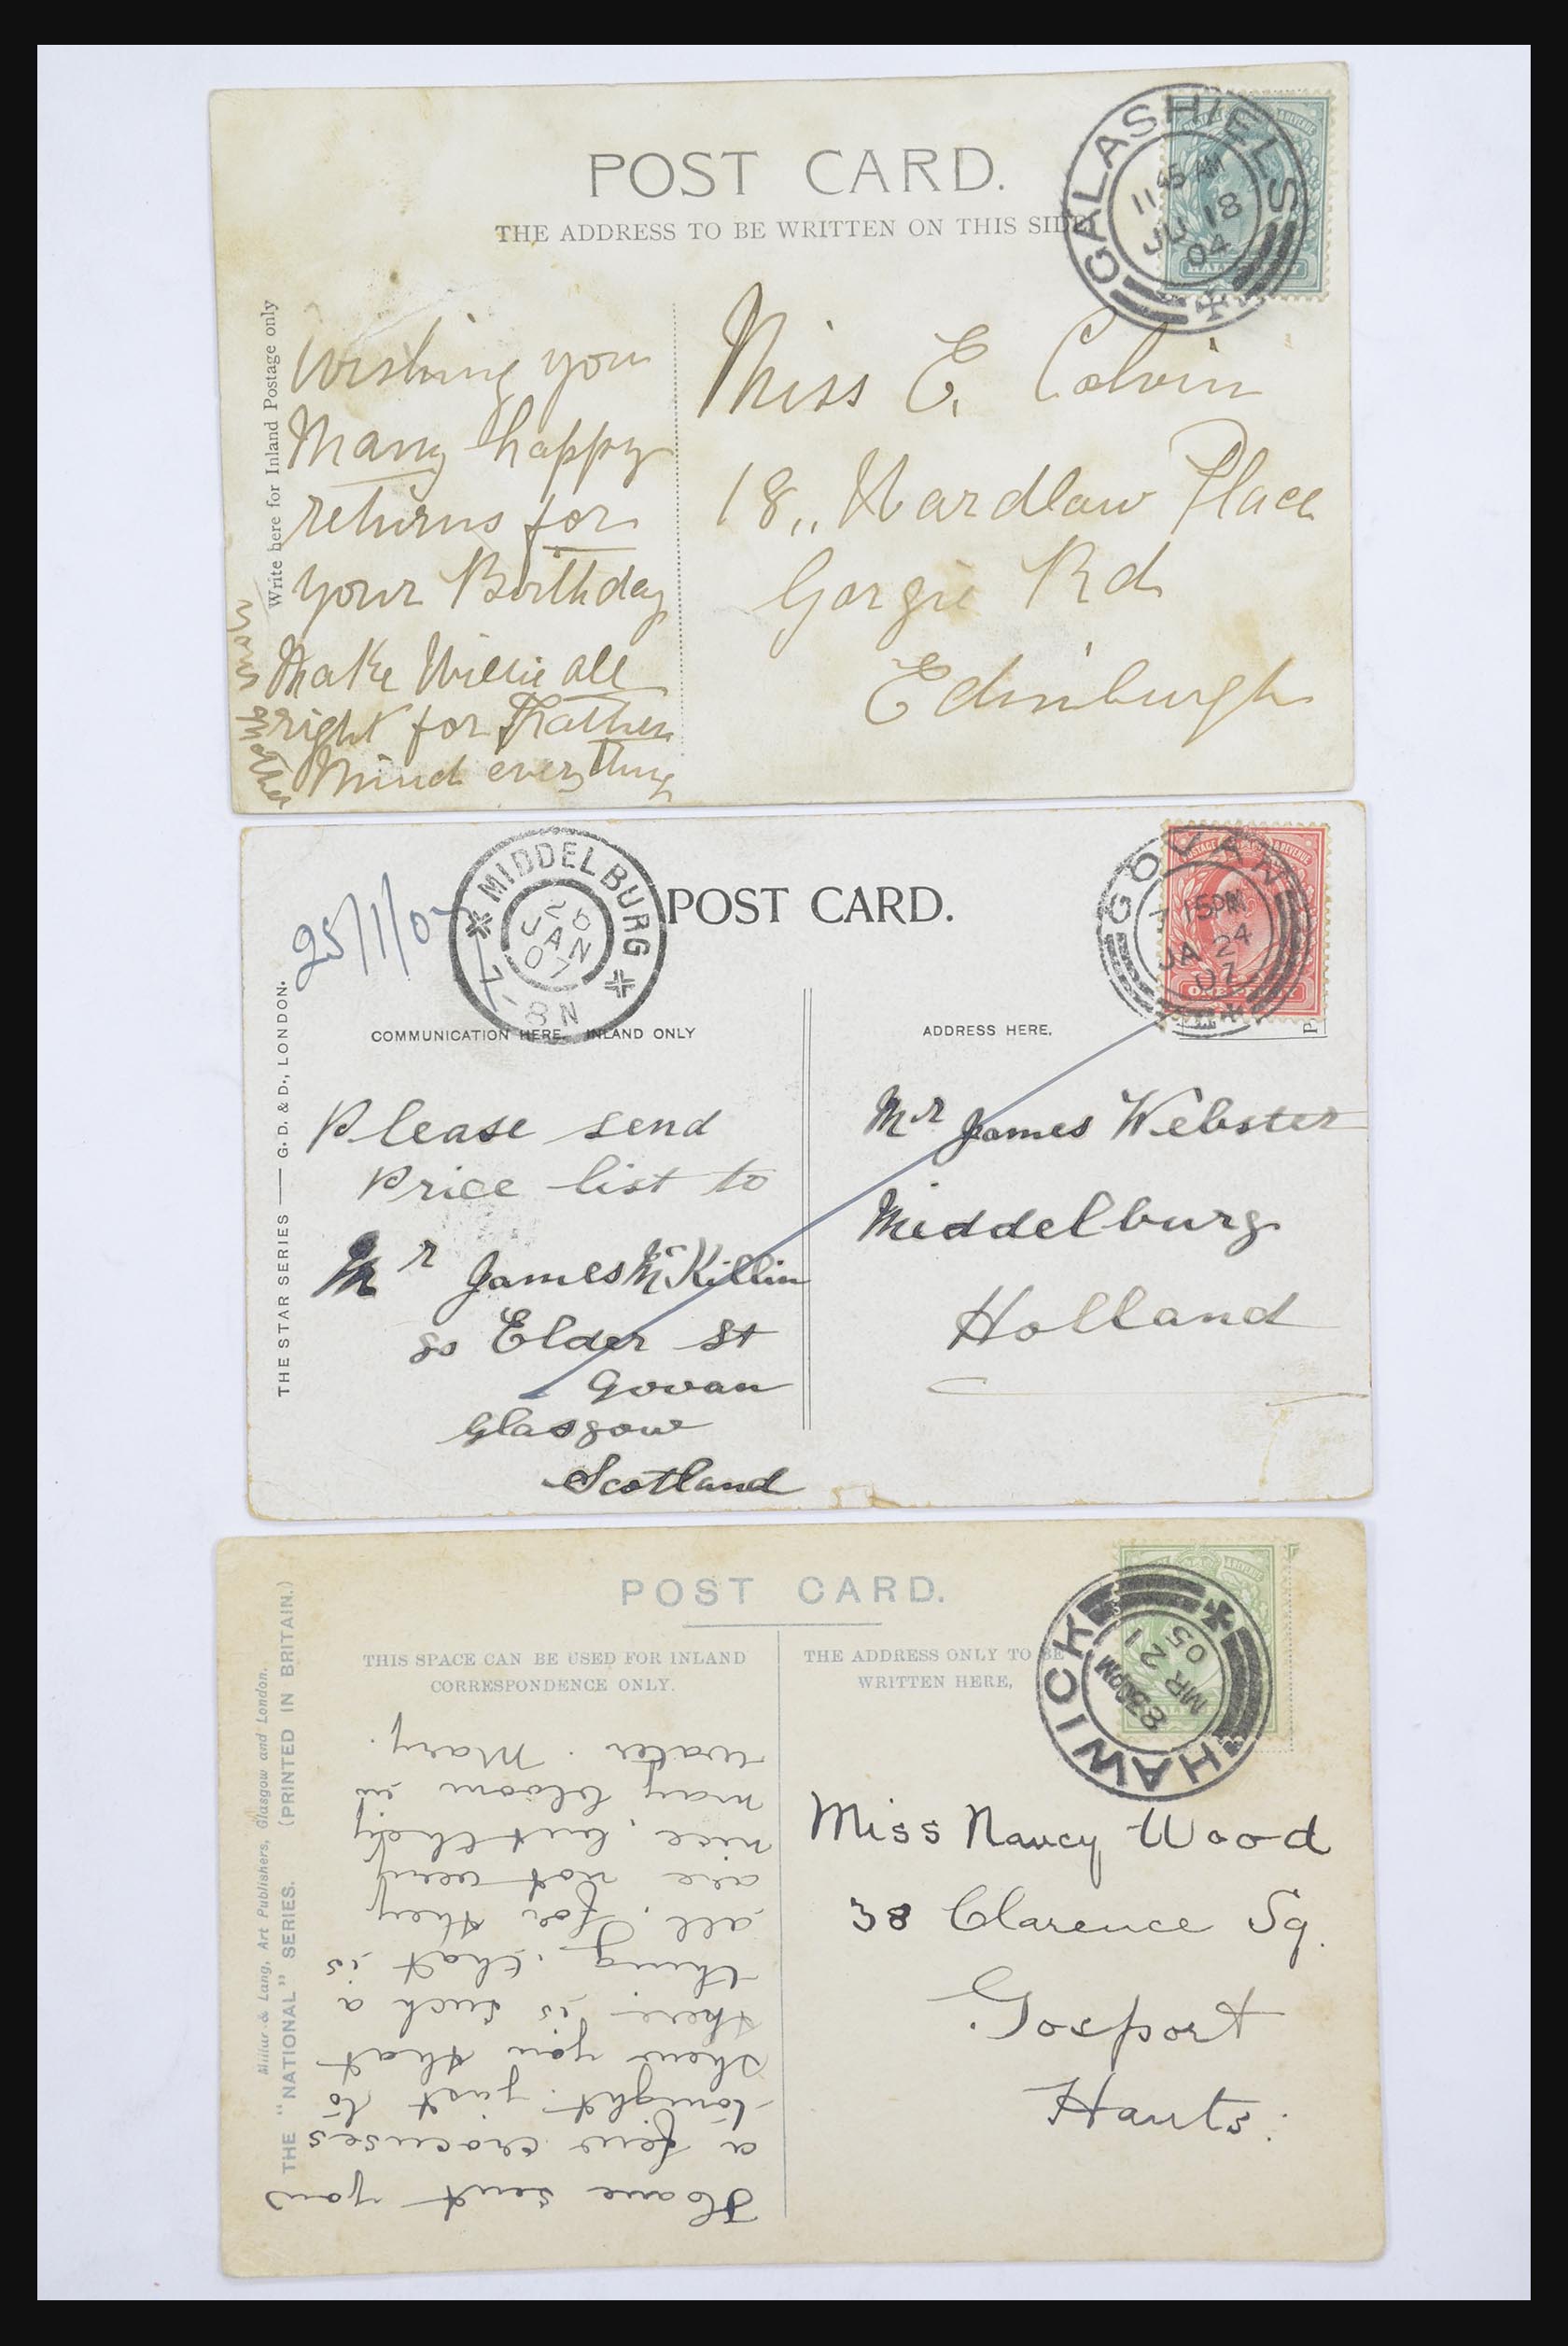 POST CARD.
THE ADDRESS TO BE WRITTEN ON THIS SIDE
GALASHIELS
11 45 AM
JU 18
04
Write here for Inland Postage only
Wishing you
Many happy
returns for
your Birthday
Make Willie all
right for
Mind everything
your Mother
Miss E. Colvin
18,, Wardlaw Place
Gorgie Rd
Edinburgh
25/1/07
MIDDELBURG
26
JAN
07
7-8N
POST CARD.
GOVAN
15PM
JA 24
07
POSTAGE & REVENUE
ONE PENNY
COMMUNICATION HERE. INLAND ONLY
ADDRESS HERE.
THE STAR SERIES — G. D. & D., LONDON.
Please send
Price list to
Mr James McKillin
80 Elder St
Govan
Glasgow
Scotland
Mr James Webster
Middelburg
Holland
POST CARD.
THIS SPACE CAN BE USED FOR INLAND
CORRESPONDENCE ONLY.
THE ADDRESS ONLY TO BE
WRITTEN HERE,
HAWICK
830PM
MR 21
05
Millar & Lang, Art Publishers, Glasgow and London.
THE "NATIONAL" SERIES. (PRINTED IN BRITAIN.)
Have sent you
a few crocuses
tonight just to
shew you that
there is such a
thing, that is
all, for they
are not very
nice, but they
may bloom in
water. Mary.
Miss Nancy Wood
38 Clarence Sq.
Gosport
Hants.